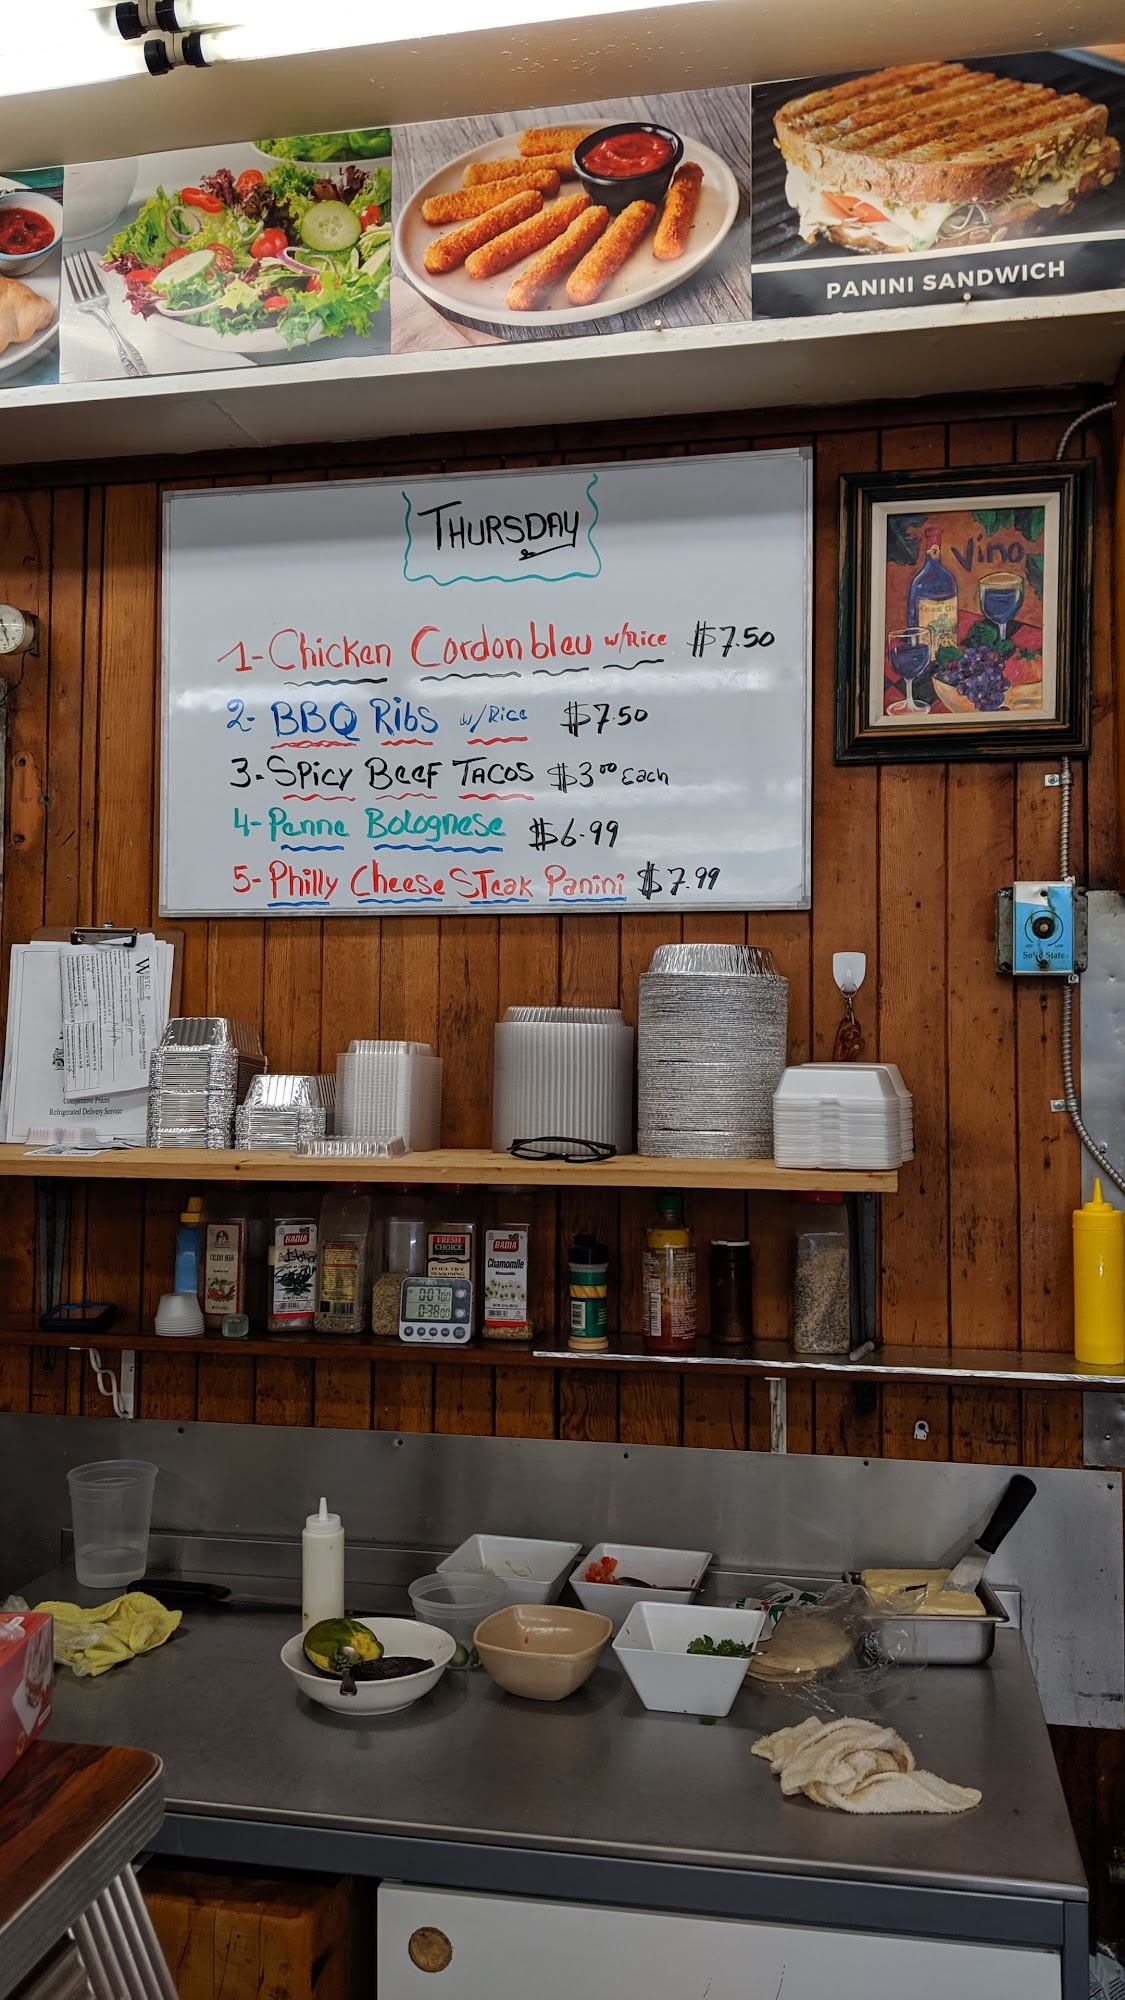 PANINI SANDWICH
THURSDAY
1- Chicken Cordon bleu w/Rice $7.50
2- BBQ Ribs w/Rice $7.50
3- Spicy Beef Tacos $3.00 Each
4- Penne Bolognese $6.99
5- Philly Cheese Steak Panini $7.99
Vino
Solid State
Competitive Prices
Refrigerated Delivery Service
CELERY SEED
BADIA
FRESH CHOICE
POULTRY SEASONING
BADIA
Chamomile
Manzanilla
0:07
0:38